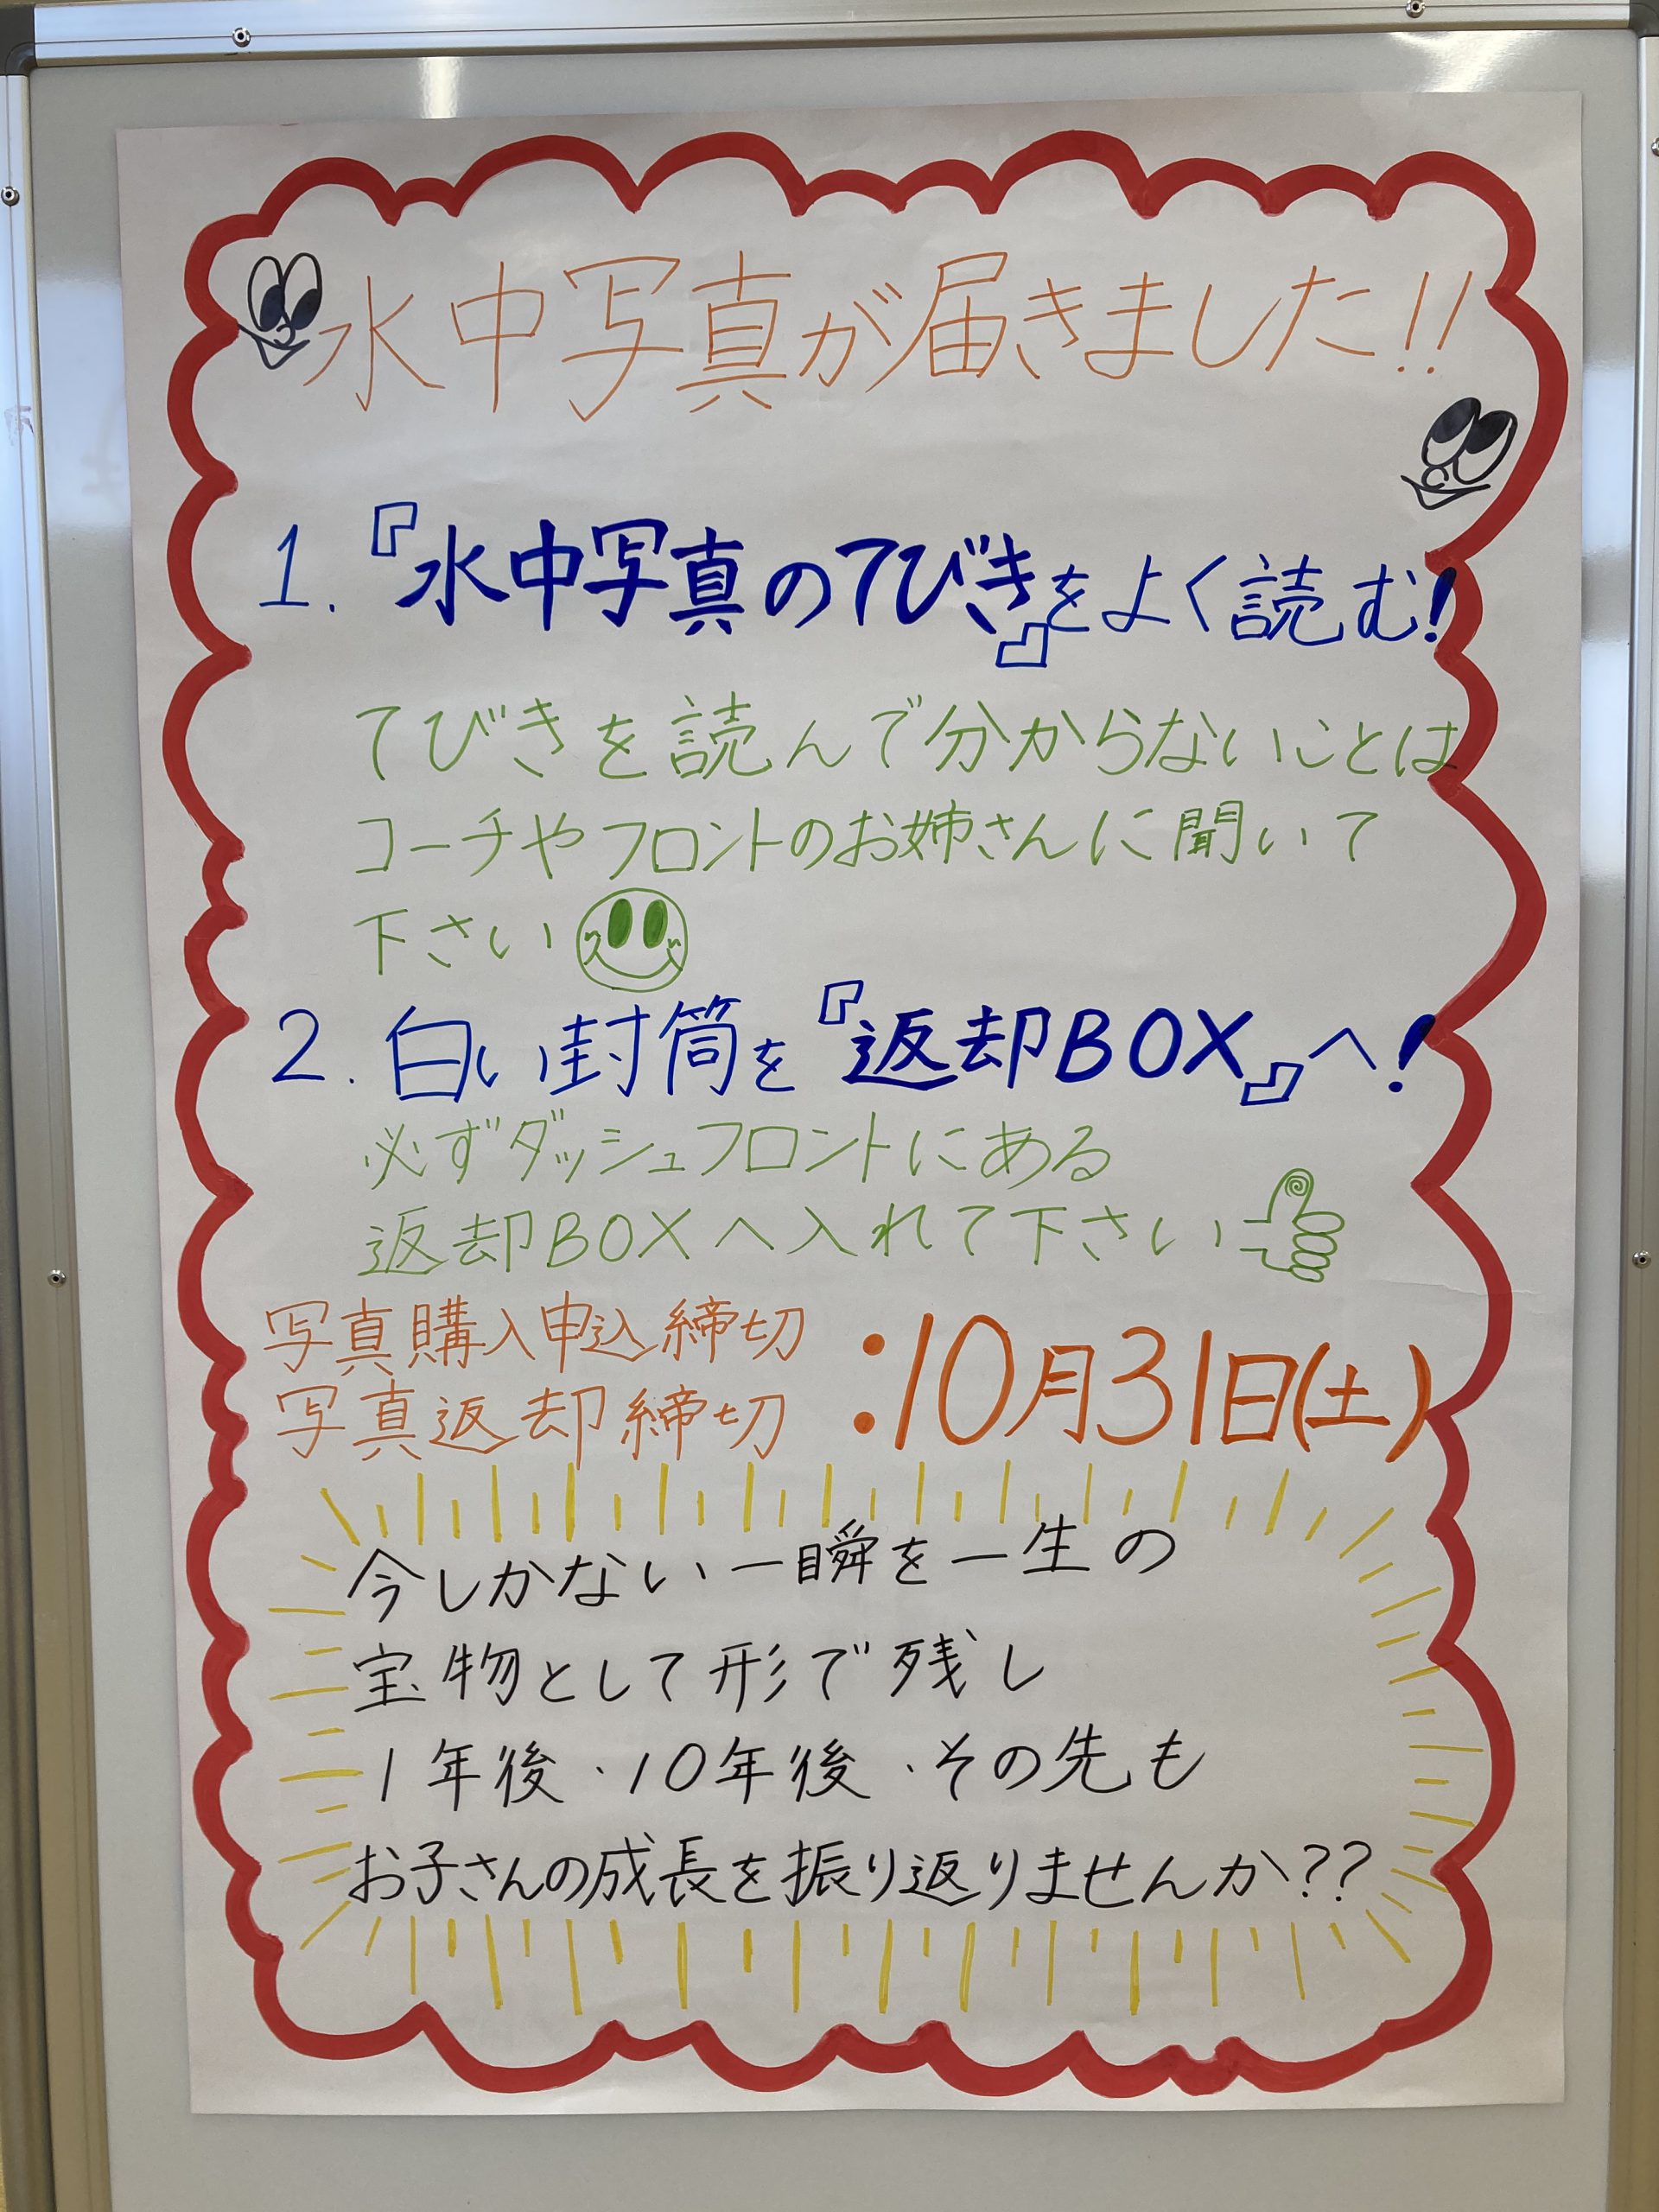 水中写真が届きました!!
1.『水中写真のてびき』をよく読む!
てびきを読んで分からないことは
コーチやフロントのお姉さんに聞いて
下さい
2.白い封筒を『返却BOX』へ!
必ずダッシュフロントにある
返却BOXへ入れて下さい
写真購入申込締切
写真返却締切
:10月31日(土)
今しかない一瞬を一生の
宝物として形で残し
1年後・10年後・その先も
お子さんの成長を振り返りませんか??